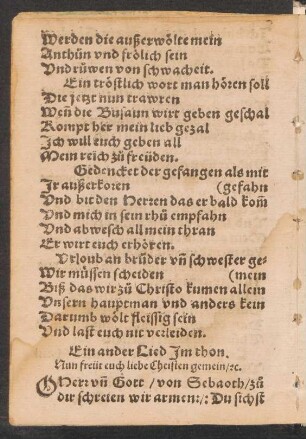 Werden die außerwölte mein
Anthün vnd frölich sein
Vnd rüwen von schwacheit.
Ein tröstlich wort man hören soll
Die jetzt nun trawren
Weñ die Busaun wirt geben geschal
Kompt her mein lieb gezal
Ich will euch geben all
Mein reich zů freüden.
Gedencket der gefangen als mit
Ir außerkoren (gefahn
Vnd bit den Herren das er bald kom̃
Vnd mich in sein rhů empfahn
Vnd abwesch all mein thran
Er wirt euch erhören.
Vrloub an brüder vñ schwester ge-
Wir müssen scheiden (mein
Biß das wir zů Christo kumen allein
Vnsern hauptman vnd anders kein
Darumb wölt fleissig sein
Vnd last euch nit verleiden.
Ein ander Lied Im thon.
Nun freüt euch liebe Christen gemein/ꝛc.
O Herr vñ Gott / von Sebaoth/zů
dir schreien wir armen:/: Du sichst